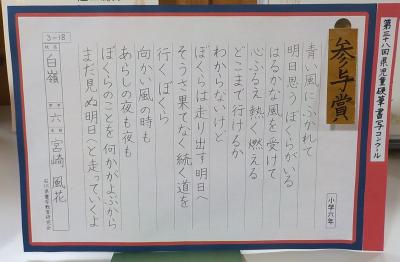 第三十八回県児童硬筆書写コンクール
参与賞
小学六年
青い風にふかれて
明日思うぼくらがいる
はるかな風を受けて
心ふるえ熱く燃える
どこまで行けるか
わからないけど
ぼくらは走り出す明日へ
そうさ果てなく続く道を
行くぼくら
向かい風の時も
あらしの夜も夜も
ぼくらのことを何かがよぶから
まだ見ぬ明日へと走っていくよ
3-18
白嶺
六
宮崎 風花
石川県書写教育研究会